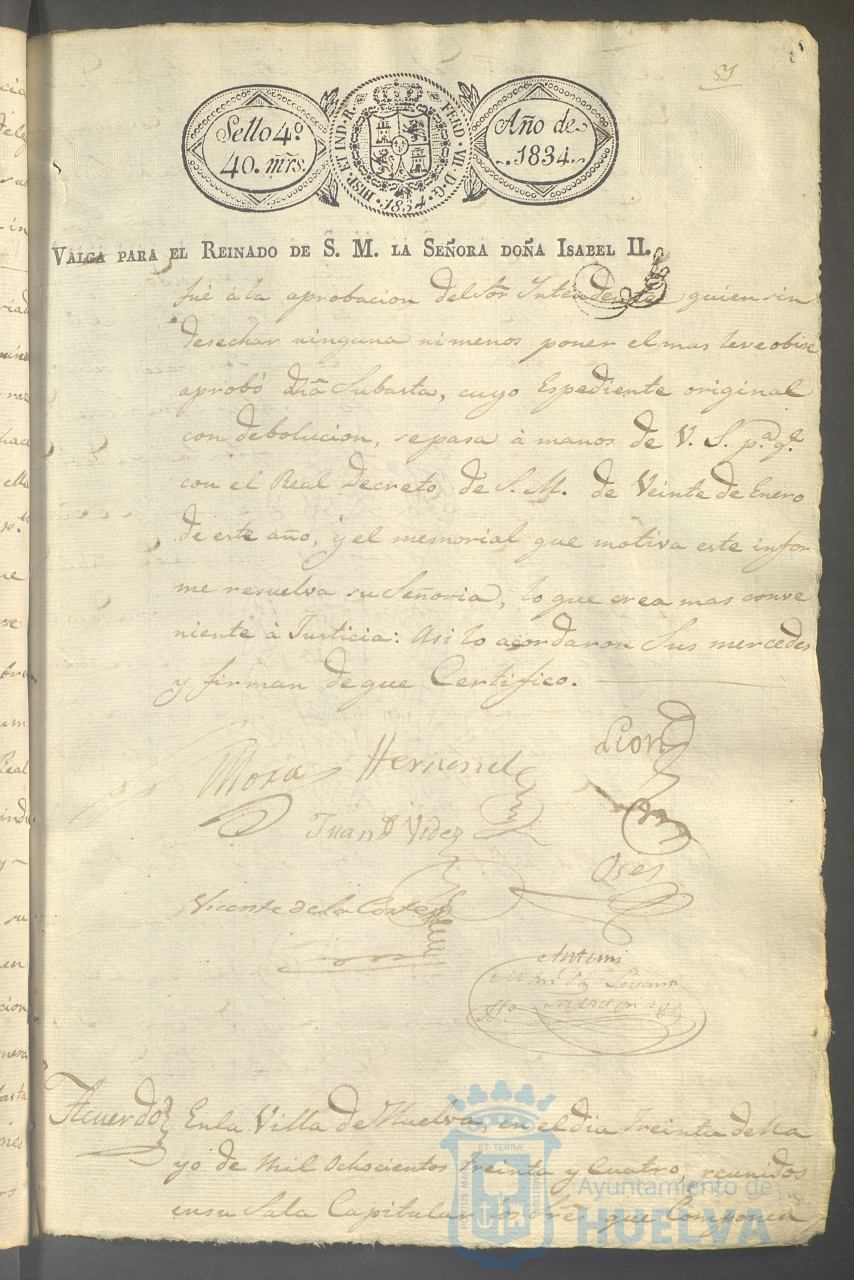 51
Sello 4º
40. mrs.
HISP. ET IND. R. FERD. VII. D. G. 1834.
Año de
1834.
VALGA PARA EL REINADO DE S. M. LA SEÑORA DOÑA ISABEL II.
fué á la aprobacion del Sor Intendente quien sin
desechar ninguna ni menos poner el mas leve obice
aprobó dha Subasta, cuyo Espediente original
con debolucion, se pasa á manos de V. S. pa. q.
con el Real Decreto de S. M. de Veinte de Enero
de este año, y el memorial que motiva este infor
me resuelva su Señoria, lo que crea mas conve
niente á Justicia: Asi lo acordaron Sus mercedes
y firman de que Certifico.
Mora Hernand
Leon
Juan
Vicente de la Corte
Antemi
Acuerdo
En la Villa de Huelva, en el dia treinta de Ma
yo de Mil Ochocientos treinta y Cuatro, reunidos
en su Sala Capitular los Sres que Componen
ET TERRA
PORTUS MARIS
CUSTODIA
Ayuntamiento de
HUELVA